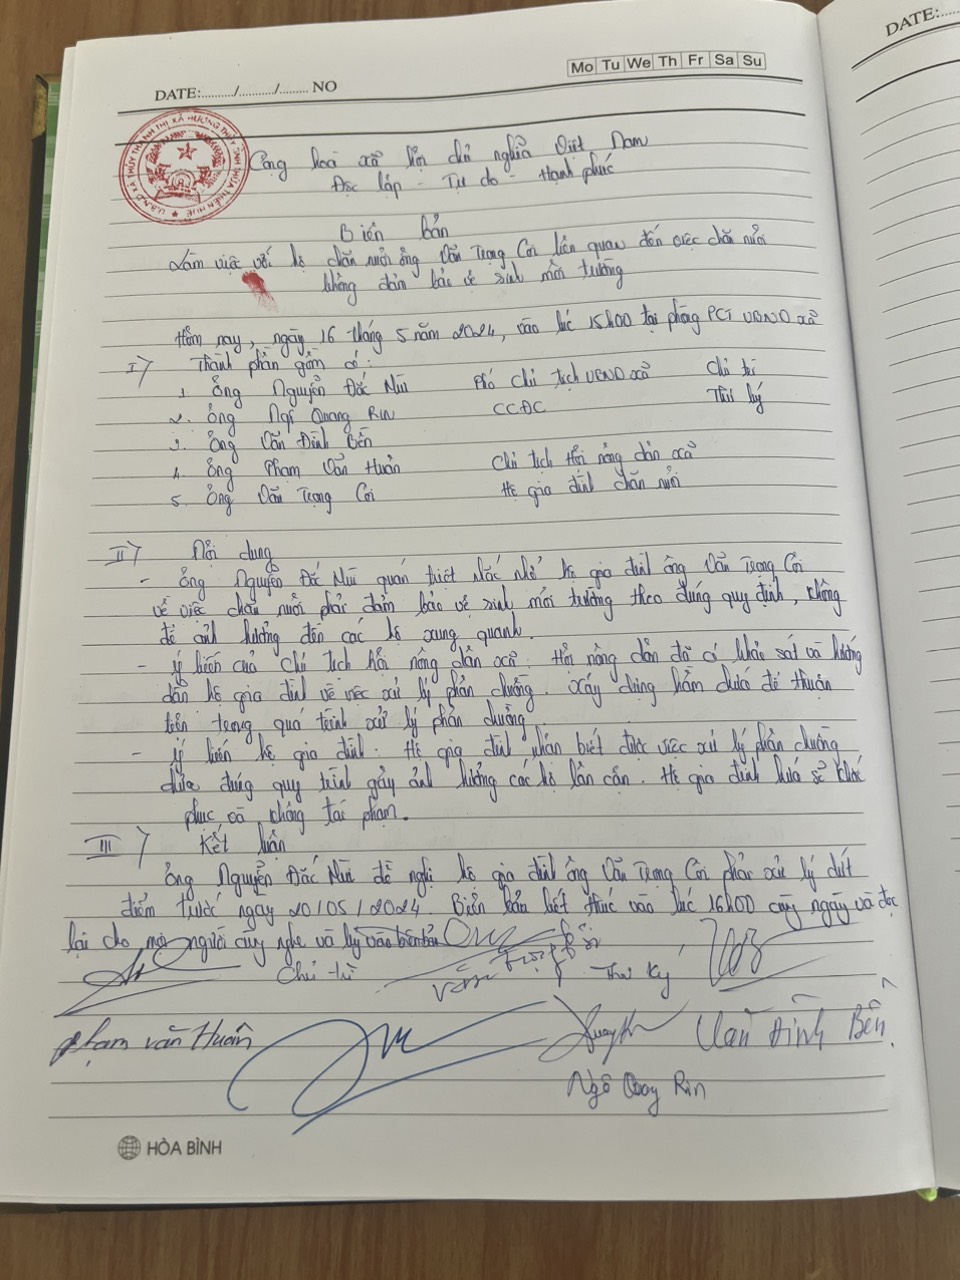 DATE:......../........../........ NO
Mo Tu We Th Fr Sa Su
DATE:
U.B.N.D XÃ THỦY THANH THỊ XÃ HƯƠNG THỦY TỈNH THỪA THIÊN HUẾ
Cộng hoà xã hội chủ nghĩa Việt Nam
Độc lập - Tự do - Hạnh phúc
Biên bản
Làm việc với hộ chăn nuôi ông Văn Trọng Cời liên quan đến việc chăn nuôi
không đảm bảo vệ sinh môi trường
Hôm nay, ngày 16 tháng 5 năm 2024, vào lúc 15h00 tại phòng PCT UBND xã
I) Thành phần gồm có:
1. Ông Nguyễn Đắc Núi Phó Chủ tịch UBND xã Chủ trì
2. Ông Ngô Quang Rin CCĐC Thư ký
3. Ông Văn Đình Bền
4. Ông Phạm Văn Huân Chủ tịch Hội nông dân xã
5. Ông Văn Trọng Cời Hộ gia đình chăn nuôi
II) Nội dung
- Ông Nguyễn Đắc Núi quán triệt nhắc nhở hộ gia đình ông Văn Trọng Cời
về việc chăn nuôi phải đảm bảo vệ sinh môi trường theo đúng quy định, không
để ảnh hưởng đến các hộ xung quanh.
- Ý kiến của Chủ tịch hội nông dân xã: Hội nông dân đã có khảo sát và hướng
dẫn hộ gia đình về việc xử lý phân chuồng. Xây dựng hầm chứa để thuận
tiện trong quá trình xử lý phân chuồng.
- Ý kiến hộ gia đình: Hộ gia đình nhận biết được việc xử lý phân chuồng
chưa đúng quy trình gây ảnh hưởng các hộ lân cận. Hộ gia đình hứa sẽ khắc
phục và không tái phạm.
III) Kết luận
Ông Nguyễn Đắc Núi đề nghị hộ gia đình ông Văn Trọng Cời phải xử lý dứt
điểm trước ngày 20/05/2024. Biên bản kết thúc vào lúc 16h00 cùng ngày và đọc
lại cho mọi người cùng nghe và ký vào biên bản
Chủ trì Thư ký
Phạm Văn Huân Văn Đình Bền
Ngô Quang Rin
HÒA BÌNH